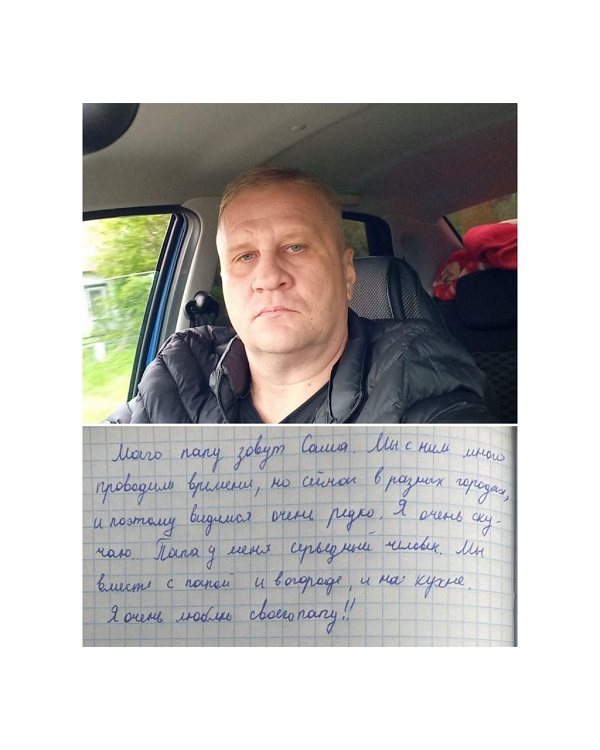 Маего папу зовут Саша. Мы с ним много
проводили времени, но сейчас в разных городах,
и поэтому видимся очень редко. Я очень ску-
чаю. Папа у меня серьезный человек. Мы
вместе с папой и в огороде, и на кухне.
Я очень люблю своего папу!!